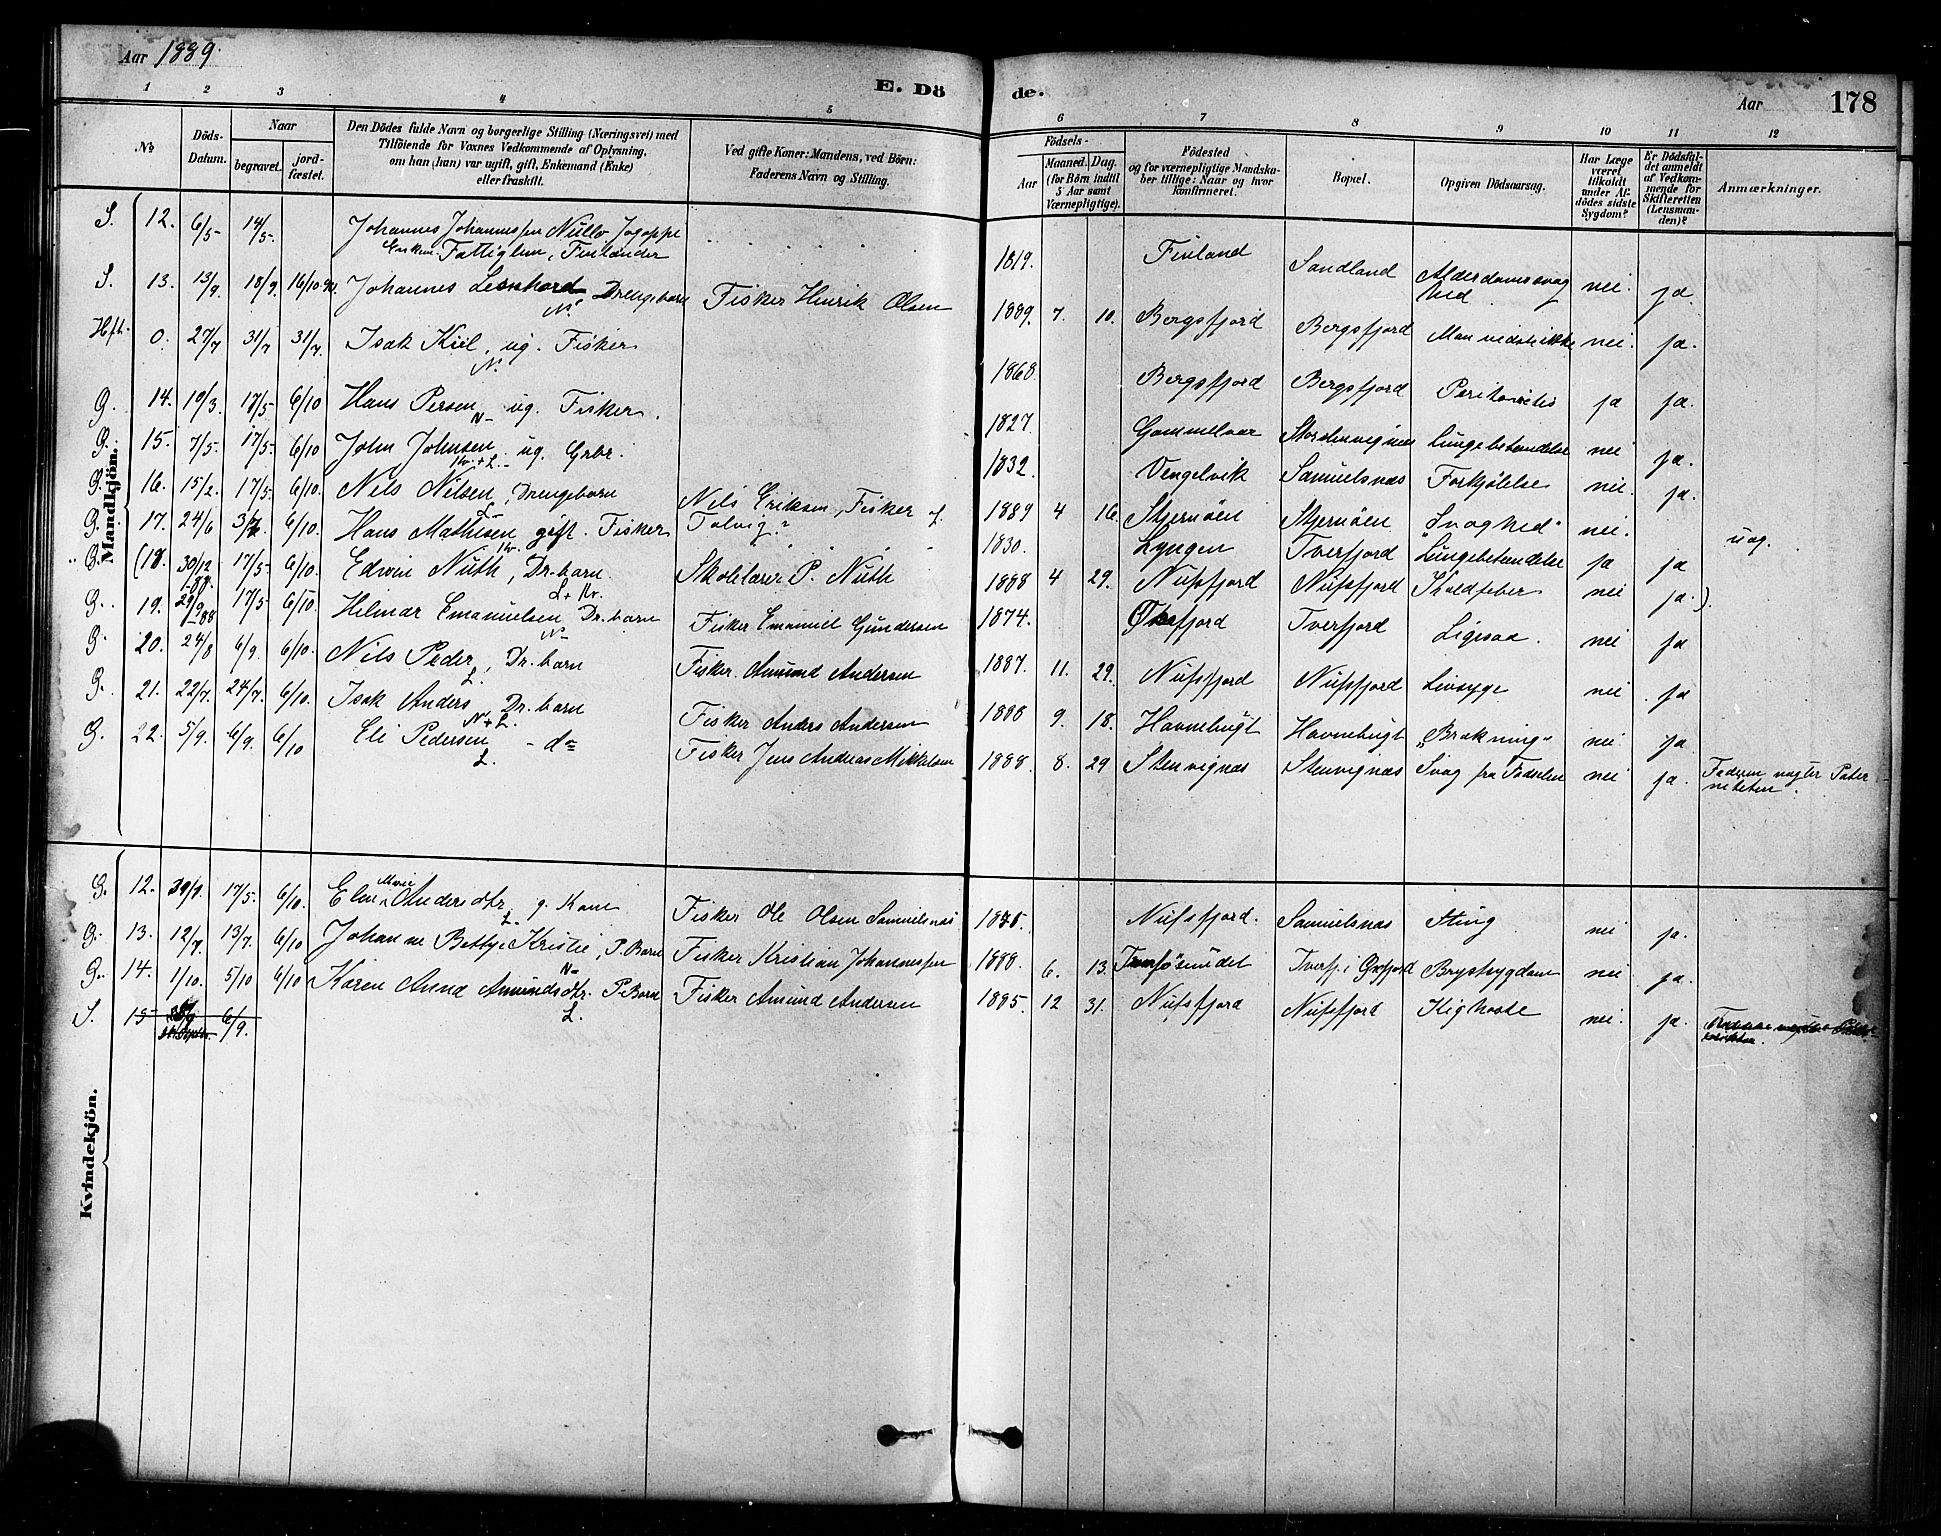 Aar 1889.
E. Döde.
Aar 178
1 2 3 4 5 6 7 8 9 10 11 12
No
Döds-Datum.
Naar
begravet.
jord-fæstet.
Den Dödes fulde Navn og borgerlige Stilling (Næringsvei) med
Tilföiende for Voxnes Vedkommende af Oplysning,
om han (hun) var ugift, gift, Enkemand (Enke)
eller fraskilt.
Ved gifte Koner: Mandens, ved Börn:
Faderens Navn og Stilling.
Födsels-
Aar
Maaned. Dag.
(for Börn indtil
5 Aar samt
Værnepligtige).
Födested
og for værnepligtige Mandska-
ber tillige: Naar og hvor
konfirmeret.
Bopæl.
Opgiven Dödsaarsag.
Har Læge
været
tilkaldt
under Af-
dödes sidste
Sygdom?
Er Dödsfal-
det anmeldt
af Vedkom-
mende for
Skifteretten
(Lensman-
den)?
Anmærkninger.
Mandkjön.
S. 12. 6/5- 14/5- Johannes Johannessen Nullo 1819. Finland Sandland Alderdomssvaghed nei ja.
Fattiglem, Finlænder
S. 13. 13/9. 18/9. 16/10 Johannes Leonhard Drengebarn N. Fisker Henrik Olsen 1889. 7. 10. Bergsfjord Bergsfjord Man vidste ikke nei. ja.
Hft. 0. 27/7 31/7 31/7. Isak Kiil, ug. Fisker N. 1868. Bergsfjord Bergsfjord ja ja.
G. 14. 19/3. 17/5- 6/10 Hans Persen ug. Fisker. N- 1827 Gammelvær Lungebetændelse nei ja.
G. 15. 7/5. 17/5- 6/10 John Johnsen ug. Grbr. 1832. Vengelvik Samuelsnæs Forkjølelse nei. ja.
G. 16. 15/2. 17/5. 6/10. Nils Nilsen, Drengebarn L- Nils Eriksen, Fisker L. 1889 4 16. Stjernøen Stjernøen "Svaghed" nei. uæg.
G. 17. 24/6 6/10. Hans Mathisen gift. Fisker Tolvig? 1830. Lyngen Tverfjord "Lungebetændelse ja ja
G. (18. 30/12 -88. 17/5- 6/10. Edvin Nuth, Dr. barn. Skolelærer P. Nuth 1888 4 29. Nufsfjord Nufsfjord nei ja.)
G. 19. 29/9 -88 17/5 6/10. Hilmar Emanuelsen, Dr. barn N- Fisker Emanuel Gundersen 1874. Øksfjord Tverfjord Ligesaa. nei ja
G. 20. 24/8 6/9. 6/10. Nils Peder, Dr. barn L. Fisker Amund Andersen 1887. 11. 29. Nufsfjord Nufsfjord nei ja
G. 21. 22/7. 24/7. 6/10. Isak Anders Dr. barn N+L. Fisker Anders Andersen 1888 9. 18. Havnebugt Havnebugt "Brækning" nei ja.
G. 22. 5/9. 6/9. 6/10 Eli Pedersen - do L. Fisker Jens Andreas Mikkelsen 1888. 8. 29 Stenvignæs Stenvignæs Svag fra Fødselen nei ja. Faderen nægter Pater-
niteten.
Kvindekjön.
G. 12. 17/5. 6/10. Elen Marie Andersdtr. g. Kone L. Fisker Ole Olsen Samuelsnæs Nufsfjord. Samuelsnæs Sting nei ja.
G. 13. 12/7. 13/7. 6/10 Johanne Betty Kristie, P. Barn N- Fisker Kristian Johannessen 1888. 6. 13. nei ja.
G. 14. 1/10. 5/10 6/10 Karen Anna Amundsdtr. P. Barn L. Fisker Amund Andersen 1885 12 31. Nufsfjord Nufsfjord Kighoste nei ja.
S. 15 6/9.